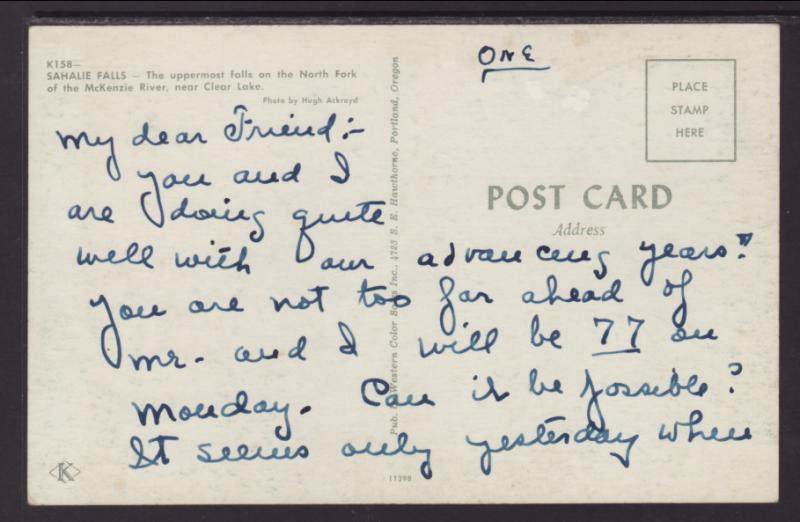 K158—
SAHALIE FALLS — The uppermost falls on the North Fork
of the McKenzie River, near Clear Lake.
Photo by Hugh Ackroyd
ONE
PLACE
STAMP
HERE
POST CARD
Address
My dear Friend:-
you and I
are doing quite
well with our advancing years."
you are not too far ahead of
mr. and I will be 77 on
Monday. Can it be possible?
It seems only yesterday when
Pub. by Western Color Sales Inc., 4723 S. E. Hawthorne, Portland, Oregon
K
17398